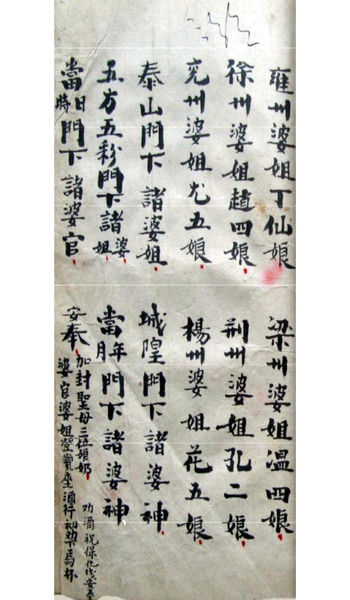 雍州婆姐丁仙娘
梁州婆姐温四娘
徐州婆姐趙四娘
荆州婆姐孔二娘
兖州婆姐尤五娘
楊州婆姐花五娘
泰山門下諸婆姐
城隍門下諸婆神
五方五彩門下諸婆姐
當年門下諸婆神
當日時門下諸婆官
安奉
加封聖母三位娘奶
婆官婆姐登寳座酒行初奠馬杯